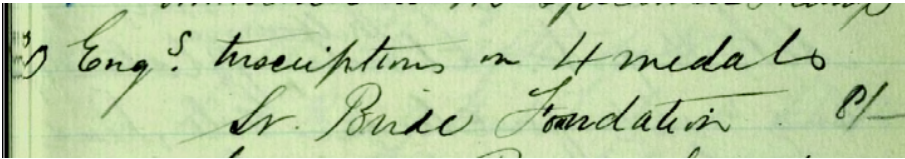 Engs. Inscriptions on 4 medals
St. Bride Foundation 8/-